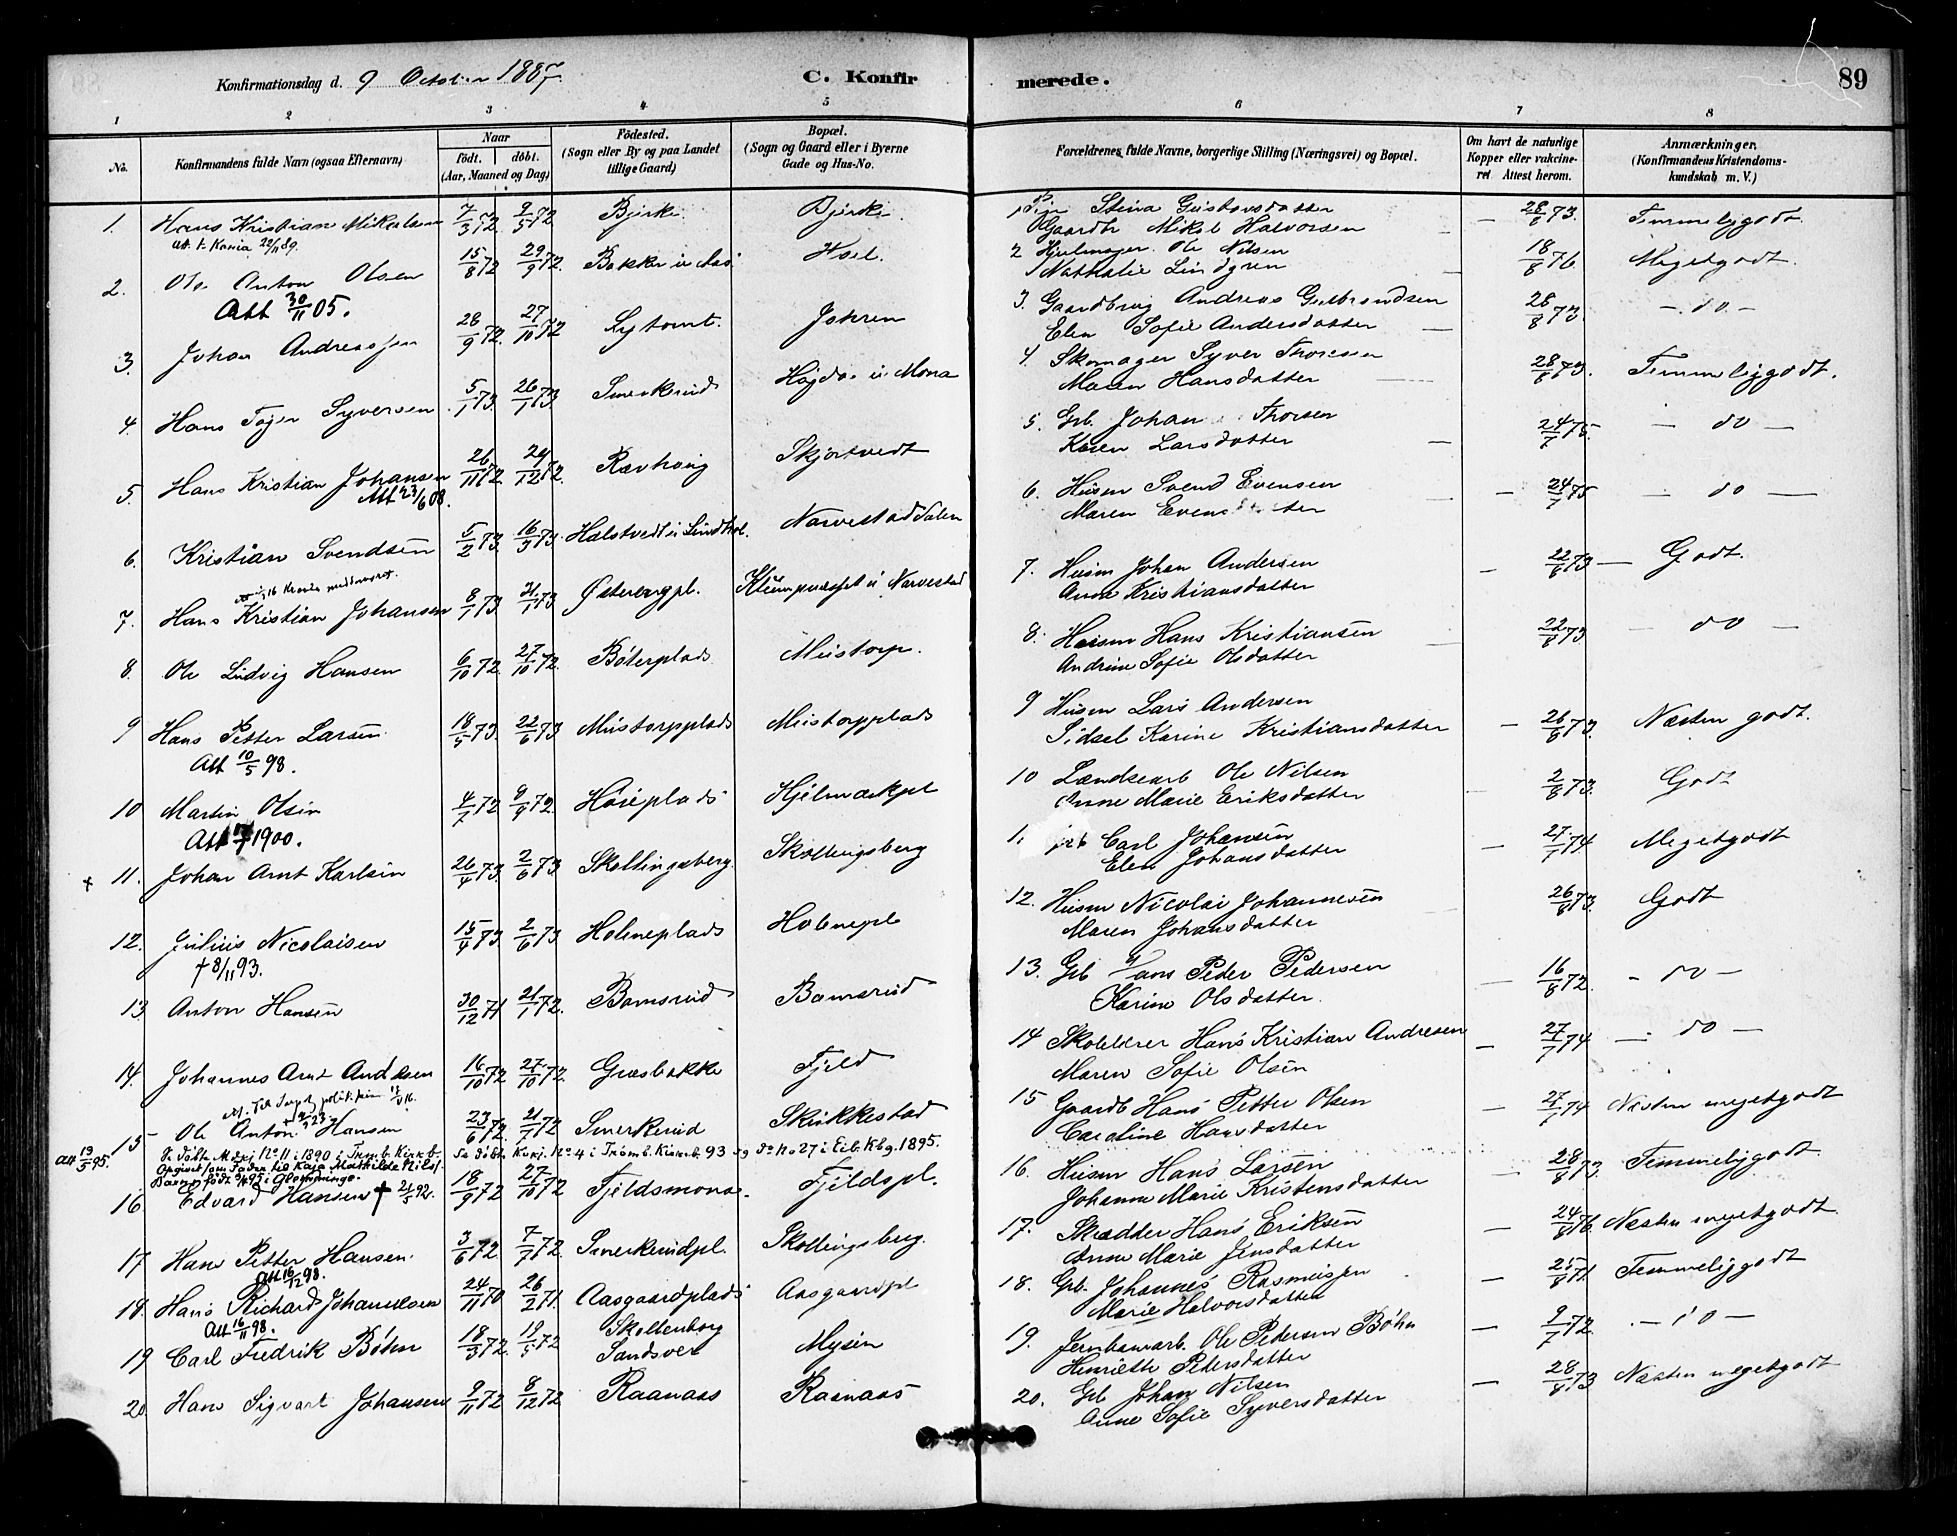 Konfirmationsdag d. 9 October 1887.
C. Konfirmerede.
89
1 2 3 4 5 6 7 8
No.
Konfirmandens fulde Navn (ogsaa Efternavn)
Naar
födt. döbt.
(Aar, Maaned og Dag)
Födested.
(Sogn eller By og paa Landet
tillige Gaard)
Bopæl.
(Sogn og Gaard eller i Byerne
Gade og Hus-No.
Forældrenes fulde Navne, borgerlige Stilling (Næringsvei) og Bopæl.
Om havt de naturlige
Kopper eller vakcine-
ret Attest herom.
Anmærkninger.
(Konfirmandens Kristendoms-
kundskab m. V.)
1. Hans Kristian Mikalsen 7/3 72 9/5 72 Bjerke Bjerke Stina Gustavsdatter 28/8 73. Temmeliggodt
att. t. Kania 22/11 89. Gaardbr Mikal Halvorsen
2. Ole Anton Olsen 15/8 72 29/9 72. Bakke Hjulmager Ole Nilsen 18/8 76. Megetgodt.
Att 30/11 05. Nathalie Lindgren
3. Johan Andreassen 28/9 72. 27/10 72 Lytomt. Johren Gaardbrug Andreas Gulbrandsen 28/8 73. - do -
Elen Sofie Andersdatter
4. Hans Tøjer Syversen 5/1 73. 26/1 73. Smerkerud Højda u Mona Skomager Syver Thoresen 28/8 73. Temmeliggodt.
Maren Hansdatter
5. Hans Kristian Johansen 26/11 72. 29/12 72. Rævhaug Skjortvedt Grb. Johan Thorsen 24/7 75. - do -
Att 23/6 08. Karen Larsdatter
6. Kristian Svendsen 5/2 73. 16/3 73. Halstvedt u Lindhol. Narvestaddalen Husm Svend Evensen 24/7 75 - do -
Maren Evensdatter
7. Hans Kristian Johansen 8/1 73. Østerengpl. Narvestad Husm Johan Andersen 22/8 73 - Godt.
Anna Kristiansdatter
8. Ole Ludvig Hansen 6/10 72. 27/10 72. Bøterplads Mustorp. Husm Hans Kristiansen 22/8 73 - do -
Andrine Sofie Olsdatter
9 Hans Petter Larsen 18/5 73. 22/6 73 Mustorpplads Mustorpplads Husm Lars Andersen 26/8 73. Næsten godt.
Att 10/5 98. Sidsel Karine Kristiansdatter
10 Martin Olsen 4/7 72 8/9 72. Haieplads Hjelmarkpl Landsearb Ole Nilsen 2/8 73. Godt
Att 1900. Anne Marie Eriksdatter
+ 11. Johan Arnt Karlsen 26/4 73. 2/6 73 Skollingsberg Skollingsberg Carl Johansen 27/7 74 Megetgodt
Elen Johansdatter
12. Julius Nicolaisen 15/4 73 2/6 73 Holeneplads Holenepl Husm Nicolai Johannesen 26/8 73. Godt
† 8/11 93. Maren Johansdatter
13. Anton Hansen 30/12 71 21/1 72. Bamsrud Bamsrud Grb Hans Peder Pedersen 16/8 72. - do -
Karine Olsdatter.
14. Johannes Arnt Andersen 16/10 72 27/10 72. Græsbakke Fjeld Skolelærer Hans Kristian Andresen 27/7 74 - do -
Maren Sofie Olsen
15 Ole Anton Hansen 23/6 72. 21/7 72 Smerkerud Skinkkestad Gaardb Hans Petter Olsen 27/7 74 Næsten megetgodt
Caroline Hansdatter
Att 19/5 95. Se döbte Mækj. No 11 i 1890 i Trømb. Kirkeb. Se döbte Kvkj. No 4 i Trømb. Kirkeb. 93 og do No 27 i Eib. Kbg. 1895.
Opgivet som Fader til Kaja Mathilde Nilsf.
16. Edvard Hansen † 92. 18/9 72 27/10 72 Fjeldsmona Fjeldspl. Husm Hans Larsen 28/8 73. Temmeliggodt
Johanne Marie Kristensdatter
17 Hans Petter Hansen. 3/6 72. 7/7 72. Smerkerudpl. Skollingsberg. Skrædder Hans Eriksen 24/8 76 Næsten megetgodt
Att 16/12 98. Anne Marie Jensdatter
18. Hans Richard Johannesen 24/11 70 26/2 71. Aasgaardplads Aasgaardpl Grb. Johannes Rasmussen 25/8 71 Temmeliggodt
Att 16/11 98. Marie Halvorsdatter
19 Carl Fredrik Bøhn 18/3 72. 19/5 72 Skoltenborg Sandsver Mysen Jernbanearb. Ole Pedersen Bøhn 9/7 72. - do -
Henriette Pedersdatter
20. Hans Sigvart Johansen 9/11 72 8/12 72 Raanaas Raanaas Grb Johan Nilsen 28/8 73 Næsten megetgodt
Anne Sofie Syversdatter